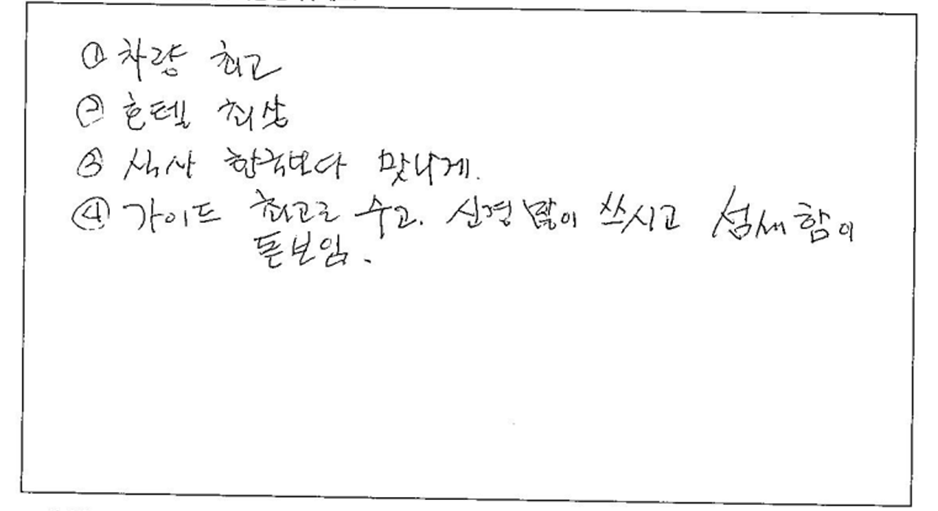 ① 차량 최고
② 호텔 최상
③ 식사 한국보다 맛나게.
④ 가이드 최고로 수고. 신경 많이 쓰시고 섬세함이
돋보임.